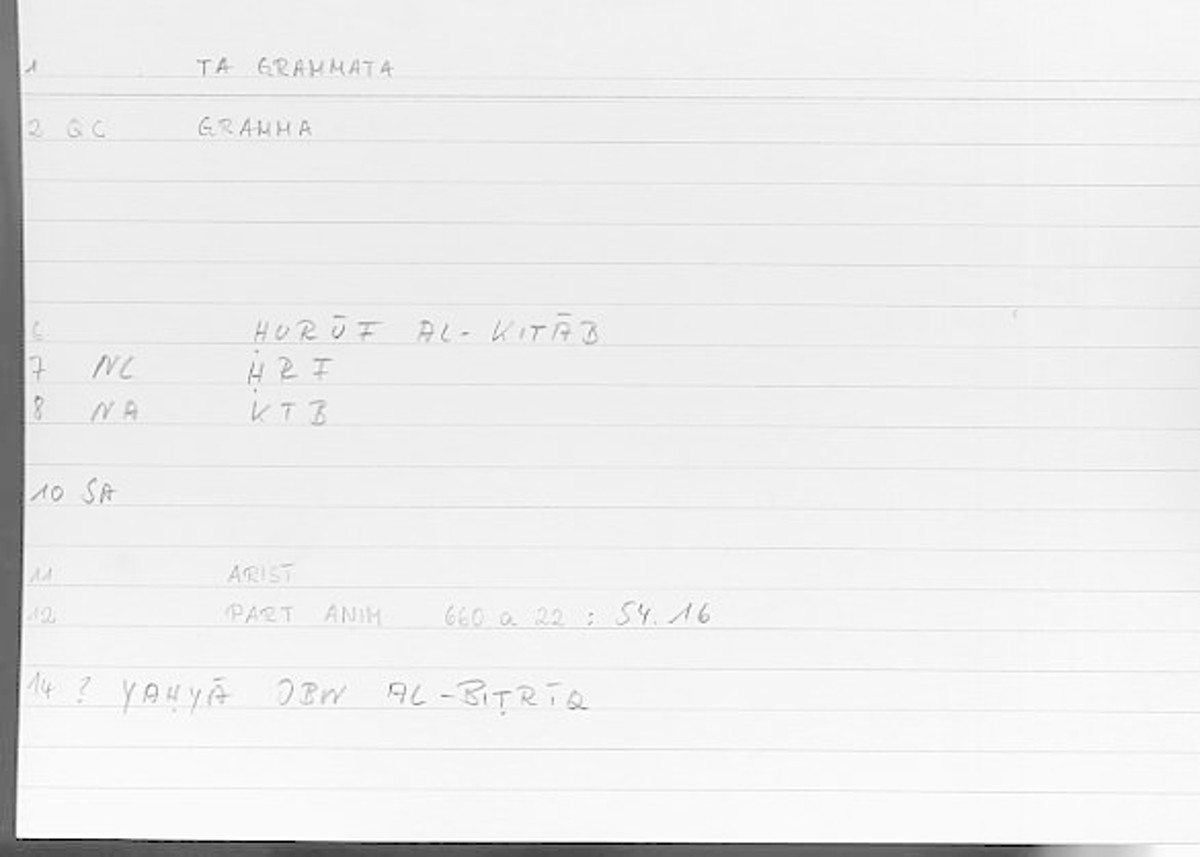 1 TA GRAMMATA
2 QC GRAMMA
6 ḤURŪF AL-KITĀB
7 NC ḤRF
8 NA KTB
10 SA
11 ARIST
12 PART ANIM 660 a 22 : 54.16
14 ? YAḤYĀ IBN AL-BIṬRĪQ